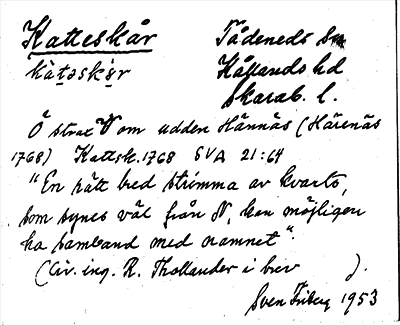 Katteskär
Tådeneds sn
kàtəskæ̀r
Kållands hd
Skarab. l.
Ö strax V om udden Hännäs (Härenäs
1768) Kattsk. 1768 SVA 21:64
"En rätt bred strimma av kvarts,
som synes väl från N, kan möjligen
ha samband med namnet".
(Civ. ing. R. Thollander i brev ).
Sven Friberg 1953